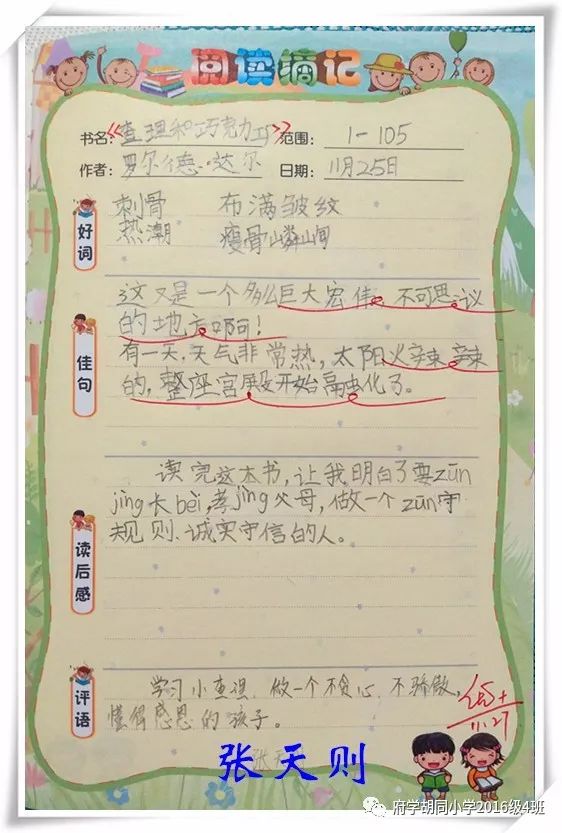 阅读摘记
书名:《查理和巧克力工》 范围: 1-105
作者: 罗尔德·达尔 日期: 11月25日
好词
刺骨 布满皱纹
热潮 瘦骨嶙峋
佳句
这又是一个多么巨大宏伟、不可思议
的地方啊!
有一天,天气非常热,太阳火辣辣
的,整座宫殿开始融化了。
读后感
读完这本书,让我明白了要zūn
jìng长bèi,孝jìng父母,做一个zūn守
规则、诚实守信的人。
评语
学习小查理,做一个不贪心、不骄傲,
懂得感恩的孩子。
优+
11.27
张天则
府学胡同小学2016级4班